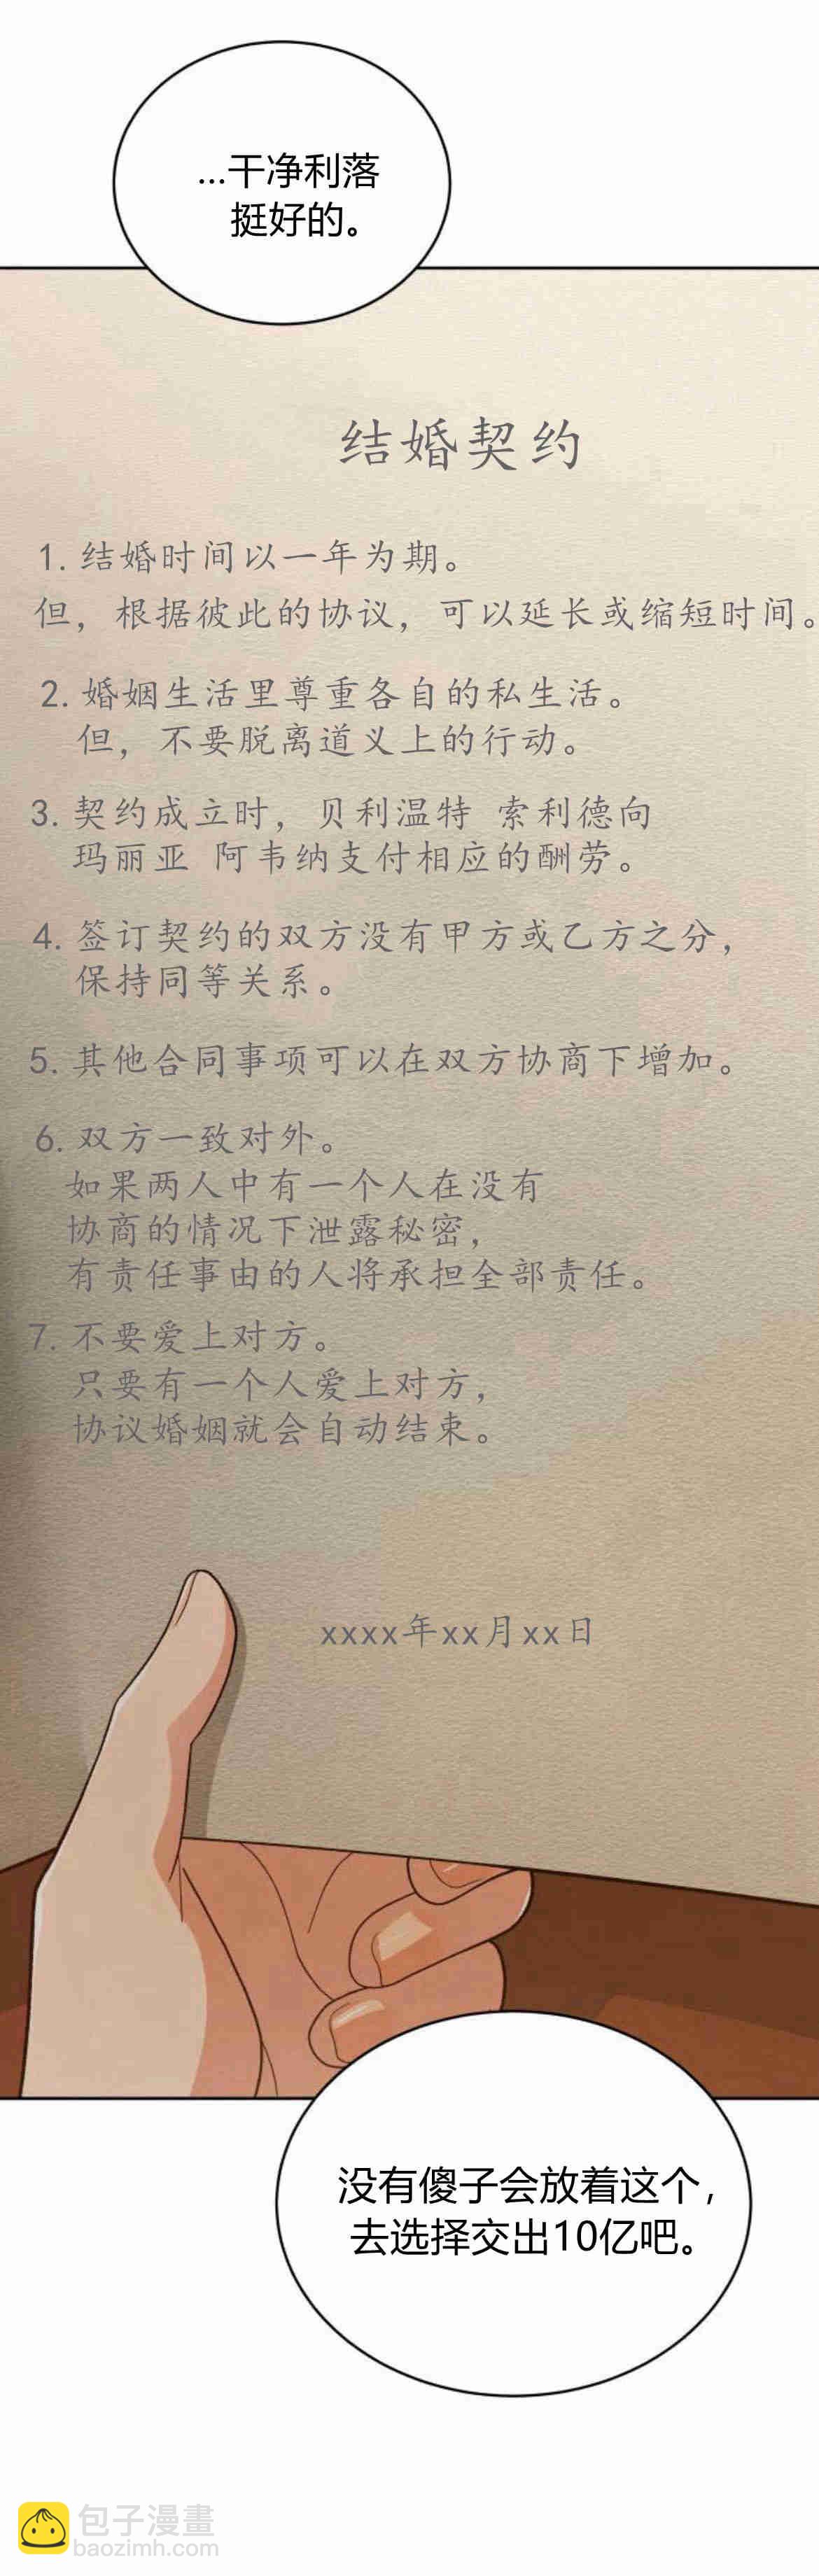 …干净利落
挺好的。
结婚契约
1. 结婚时间以一年为期。
但，根据彼此的协议，可以延长或缩短时间。
2. 婚姻生活里尊重各自的私生活。
但，不要脱离道义上的行动。
3. 契约成立时，贝利温特 索利德向
玛丽亚 阿韦纳支付相应的酬劳。
4. 签订契约的双方没有甲方或乙方之分，
保持同等关系。
5. 其他合同事项可以在双方协商下增加。
6. 双方一致对外。
如果两人中有一个人在没有
协商的情况下泄露秘密，
有责任事由的人将承担全部责任。
7. 不要爱上对方。
只要有一个人爱上对方，
协议婚姻就会自动结束。
xxxx年xx月xx日
没有傻子会放着这个，
去选择交出10亿吧。
包子漫畫
baozimh.com